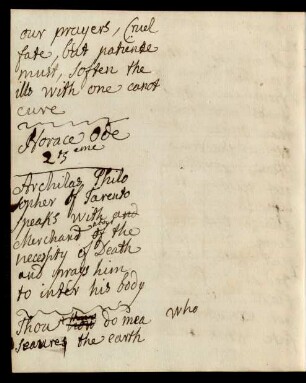 our prayers, Cruel
fate, but patience
must, soften the
ills with one canot
cure
Horace Ode
23 eme
Architas Philo
sopher of Tarento
speaks with and
Merchand about of the
necessity of Death
and prays him
to inter his body
Thou do mea
seasures the earth
who